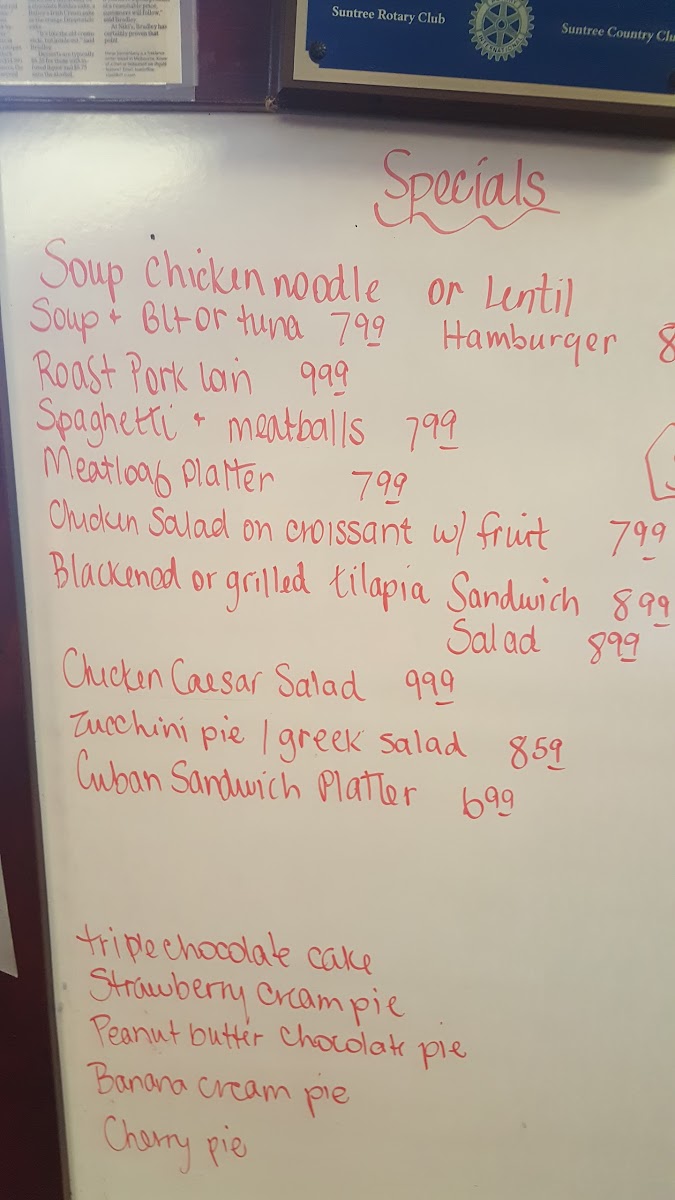 Suntree Rotary Club
Suntree Country Clu
Specials
Soup Chicken noodle or Lentil
Soup + Blt or tuna 7 99 Hamburger 8
Roast Pork loin 9 99
Spaghetti + meatballs 7 99
Meatloaf Platter 7 99
Chicken Salad on croissant w/ fruit 7 99
Blackened or grilled tilapia Sandwich 8 99
Salad 8 99
Chicken Caesar Salad 9 99
Zucchini pie / greek salad 8 59
Cuban Sandwich Platter 6 99
triple chocolate cake
Strawberry cream pie
Peanut butter chocolate pie
Banana cream pie
Cherry pie